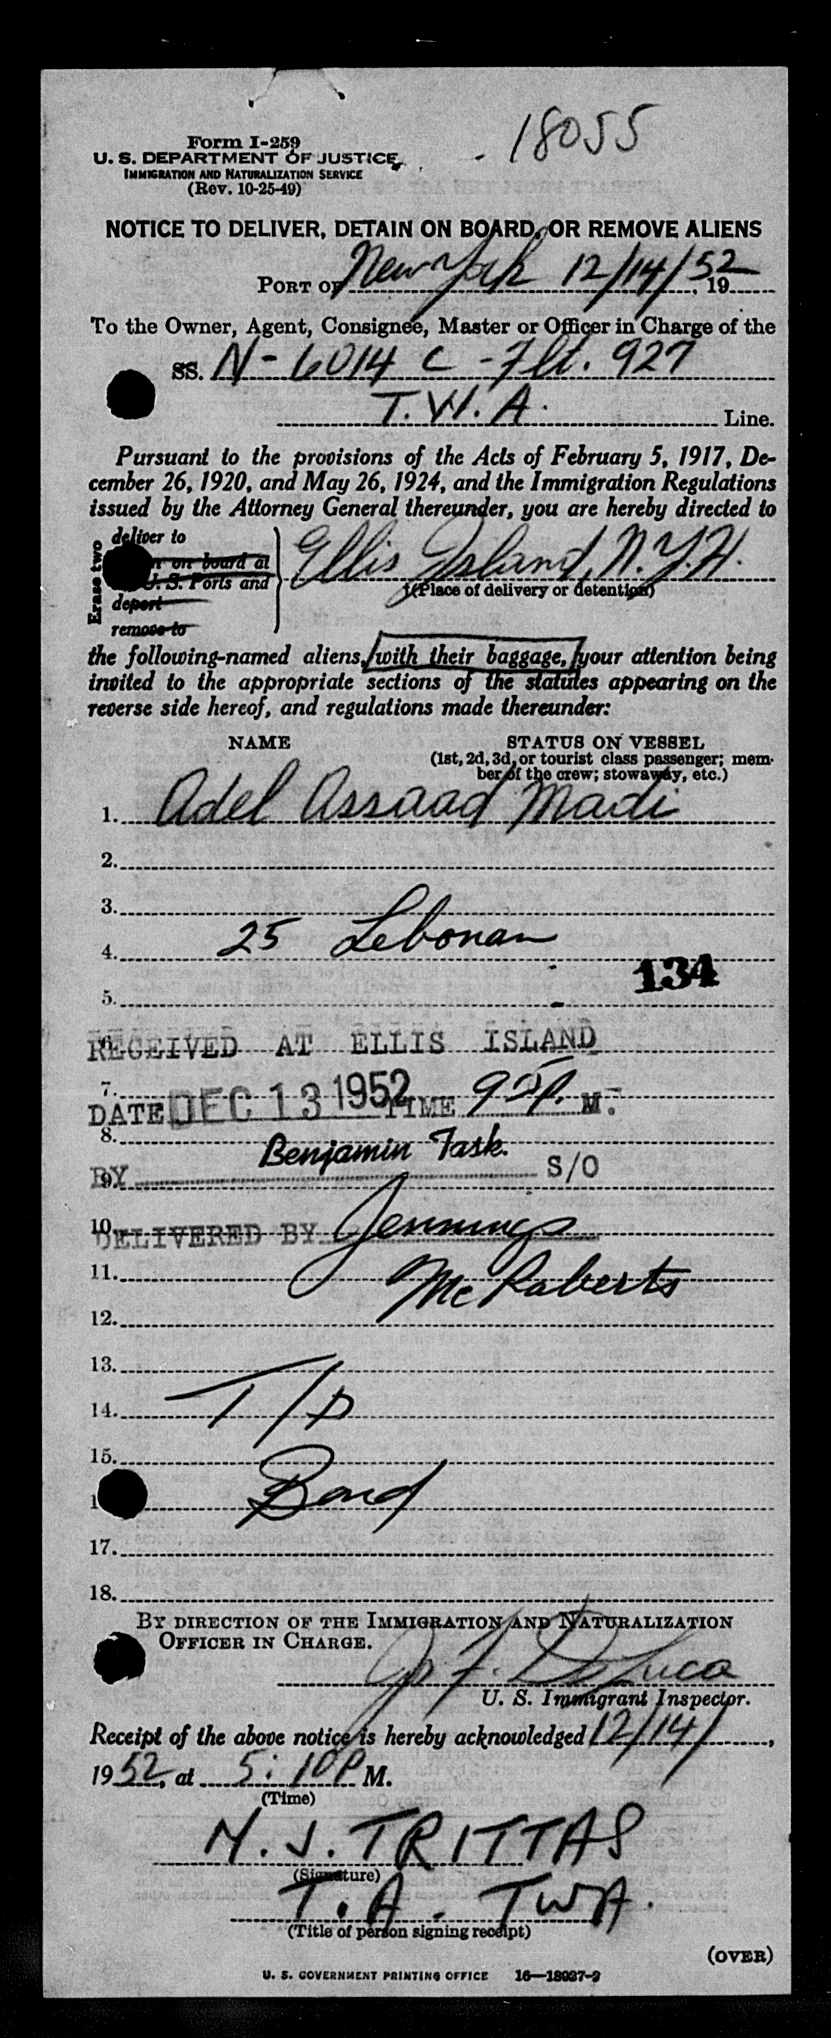 18055
Form I-259
U. S. DEPARTMENT OF JUSTICE
IMMIGRATION AND NATURALIZATION SERVICE
(Rev. 10-25-49)
NOTICE TO DELIVER, DETAIN ON BOARD, OR REMOVE ALIENS
PORT OF New York 12/14/52, 19
To the Owner, Agent, Consignee, Master or Officer in Charge of the
SS. N-6014 C - Flt. 927
T.W.A. Line.
Pursuant to the provisions of the Acts of February 5, 1917, De-
cember 26, 1920, and May 26, 1924, and the Immigration Regulations
issued by the Attorney General thereunder, you are hereby directed to
Erase two
deliver to
on board at
U.S. Ports and
deport
remove to
Ellis Island, N.Y.H.
(Place of delivery or detention)
the following-named aliens, with their baggage, your attention being
invited to the appropriate sections of the statutes appearing on the
reverse side hereof, and regulations made thereunder:
NAME STATUS ON VESSEL
(1st, 2d, 3d, or tourist class passenger; mem-
ber of the crew; stowaway, etc.)
1. Adel Assaad Madi
2.
3.
4. 25 Lebonan
5. 134
6. RECEIVED AT ELLIS ISLAND
7. DATE DEC 13 1952 TIME 9 5P. M.
8. Benjamin Task.
9. BY S/O
10. DELIVERED BY Jennings
11. McRoberts
12.
13.
14. T/D
15.
Bond
17.
18.
BY DIRECTION OF THE IMMIGRATION AND NATURALIZATION
OFFICER IN CHARGE.
Jo F. DeLuca
U. S. Immigrant Inspector.
Receipt of the above notice is hereby acknowledged 12/14/,
1952, at 5:10P M.
(Time)
N.J. TRITTAS
(Signature)
T.A. - TWA.
(Title of person signing receipt)
(OVER)
U. S. GOVERNMENT PRINTING OFFICE 16—18937-2